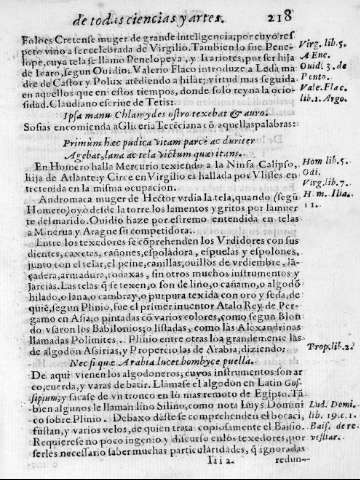 de todas ciencias y artes. 218
Foloes Cretense muger de grande inteligencia; por cuyo res
peto vino a ser celebrada de Virgilio. Tambien lo fue Pene-
lope, cuya tela se llamo Penelopeya, y Icariotes, por ser hija
de Icaro, segun Ouidio. Valerio Flaco introduze a Leda ma
dre de Castor y Polux atediendo a hilar; virtud mas seguida
en aquellos que en estos tiempos, donde solo reyna la ocio-
sidad. Claudiano escriue de Tetis:
Ipsa manu Chlamydes ostro texebat & auro.
Sosias encomienda a Gliceria Terēciana cō aquellas palabras:
Primum hæc pudica vitam parce ac duriter
Agebat, lana ac tela victum quæritans.
En Homero halla Mercurio texiendo a la Ninfa Calipso,
hija de Atlante y Circe en Virgilio es hallada por Vlisses en
tretenida en la misma ocupacion.
Andromaca muger de Hector vrdia la tela, quando (segū
Homero) oyò desde la torre los lamentos y gritos por la muer
te del marido. Ouidio haze por estremo entendida en telas
a Minerua y Aragne su competidora.
Entre los texedores se cōprehenden los Vrdidores con sus
dientes, caxetas, cañones, espoladora, espuelas y espolones,
junto con el telar, el peine, canillas, ouillos de vrdiembre, la-
çadera, armadura, roaxas, sin otros muchos instrumentos y
Jarcias. Las telas q̄ se texen, o son de lino, o cañamo, o algodō
hilado, o lana, o cambray, o purpura texida con oro y seda, de
quiē, segun Plinio, fue el primer inuentor Atalo Rey de Per-
gamo en Asia, o pintada cō varios colores, como segun Blon
do vsaron los Babilonios, o listadas, como las Alexandrinas
llamadas Polimites. Plinio entre otras loa grandemente las
de algodon Asirias, y Propercio las de Arabia, diziendo:
Nec si qua Arabio lucet bombyce puella.
De aqui vienen los algodoneros, cuyos instrumentos son ar
co, cuerda, y varas de batir. Llamase el algodon en Latin Gos-
sipium; y sacase de vn tronco en lo mas remoto de Egipto. Tā
bien algunos le llaman lino Silino, como nota Luys Domeni
co sobre Plinio. Debaxo dàste se comprehenden el bocaci,
fustan, y varios velos, de quien trata copiosamente el Baisio.
Requierese no poco ingenio y discurso en los texedores, por
serles necessario saber muchas particularidades, q̄ ignoradas
Iii 2. redun-
Virg. lib. 5.
AEne.
Ouid. 3. de
Ponto.
Vale. Flac.
lib. 1. Argo.
Hom lib. 5.
Odi.
Virg. lib. 7.
H m. Ilia.
12.
Prop. lib. 2.
Lud. Domi.
lib. 19. c. 1.
Bais. de re-
vestiar.